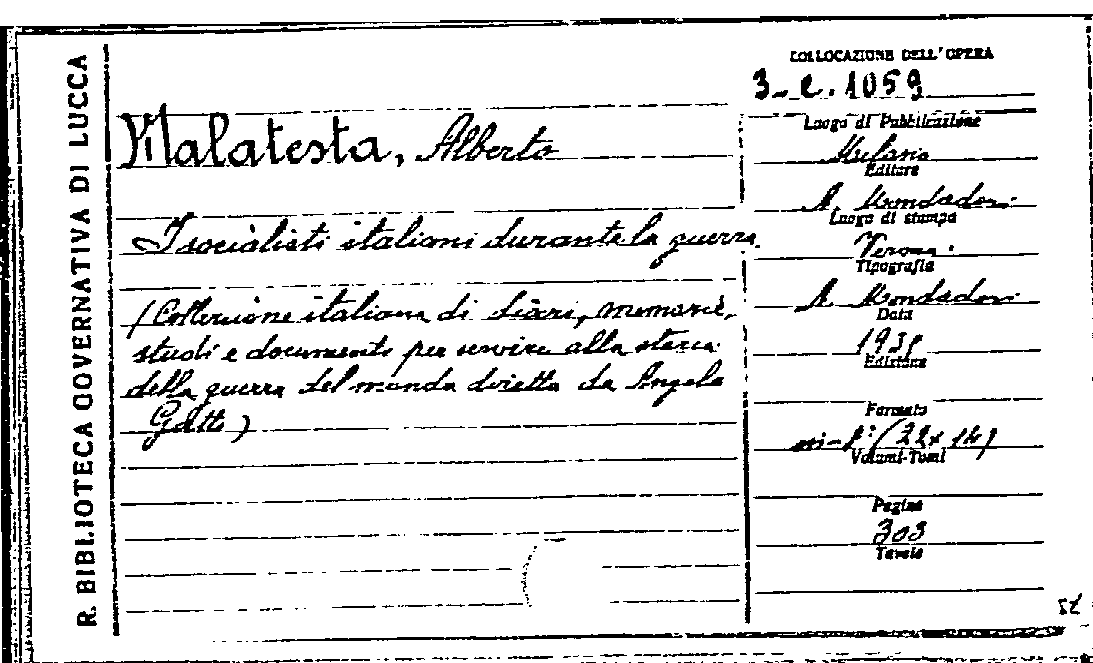 R. BIBLIOTECA GOVERNATIVA DI LUCCA
Malatesta, Alberto
I socialisti italiani durante la guerra.
(Collezione italiana di diari, memorie,
studi e documenti per servire alla storia
della guerra del mondo diretta da Angelo
Gatti)
COLLOCAZIONE DELL'OPERA
3-e.1059
Luogo di Pubblicazione
Milano
Editore
A. Mondadori
Luogo di stampa
Verona
Tipografia
A. Mondadori
Data
Edizione
Formato
in-8° (22x14)
Volumi-Tomi
Pagine
303
Tavole